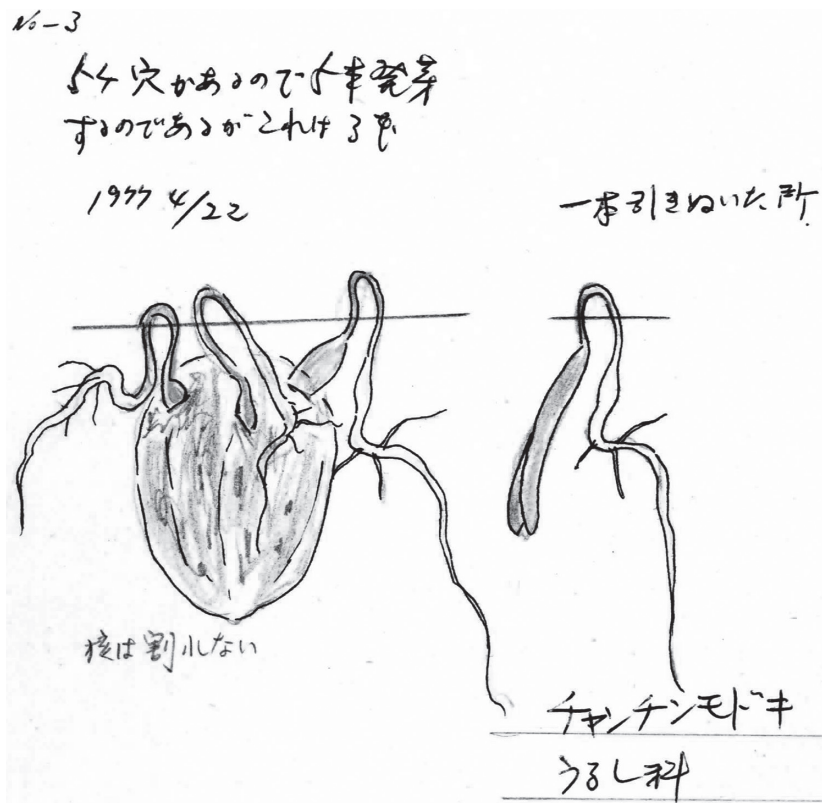 No-3
5ケ穴があるので5本発芽
するのであるがこれは3本
1977 4/22
一本引きぬいた所
核は割れしない
チャンチンモドキ
うるし科